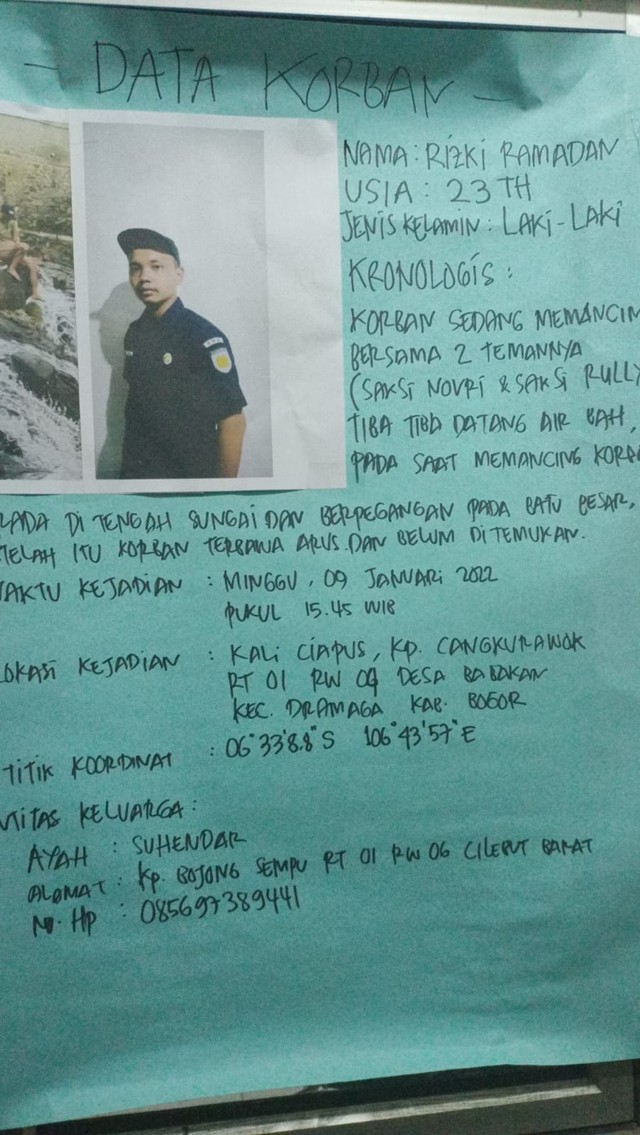 - DATA KORBAN -
NAMA : RIZKI RAMADAN
USIA : 23 TH
JENIS KELAMIN : LAKI-LAKI
KRONOLOGIS :
KORBAN SEDANG MEMANCIN
BERSAMA 2 TEMANNYA
(SAKSI NOVRI & SAKSI RULLY
TIBA TIBA DATANG AIR BAH,
PADA SAAT MEMANCING KORBA
RADA DI TENGAH SUNGAI DAN BERPEGANGAN PADA BATU BESAR,
TELAH ITU KORBAN TERBAWA ARUS DAN BELUM DITEMUKAN.
AKTU KEJADIAN : MINGGU, 09 JANUARI 2022
PUKUL 15.45 WIB
OKASI KEJADIAN : KALI CIAPUS, KP. CANGKURAWOK
RT 01 RW 09 DESA BABAKAN
KEC. DRAMAGA KAB. BOGOR
TITIK KOORDINAT : 06°33'8.8"S 106°43'57"E
NTITAS KELUARGA :
AYAH : SUHENDAR
ALAMAT : KP. BOJONG SEMPU RT 01 RW 06 CILEBUT BARAT
NO. HP : 085697389441